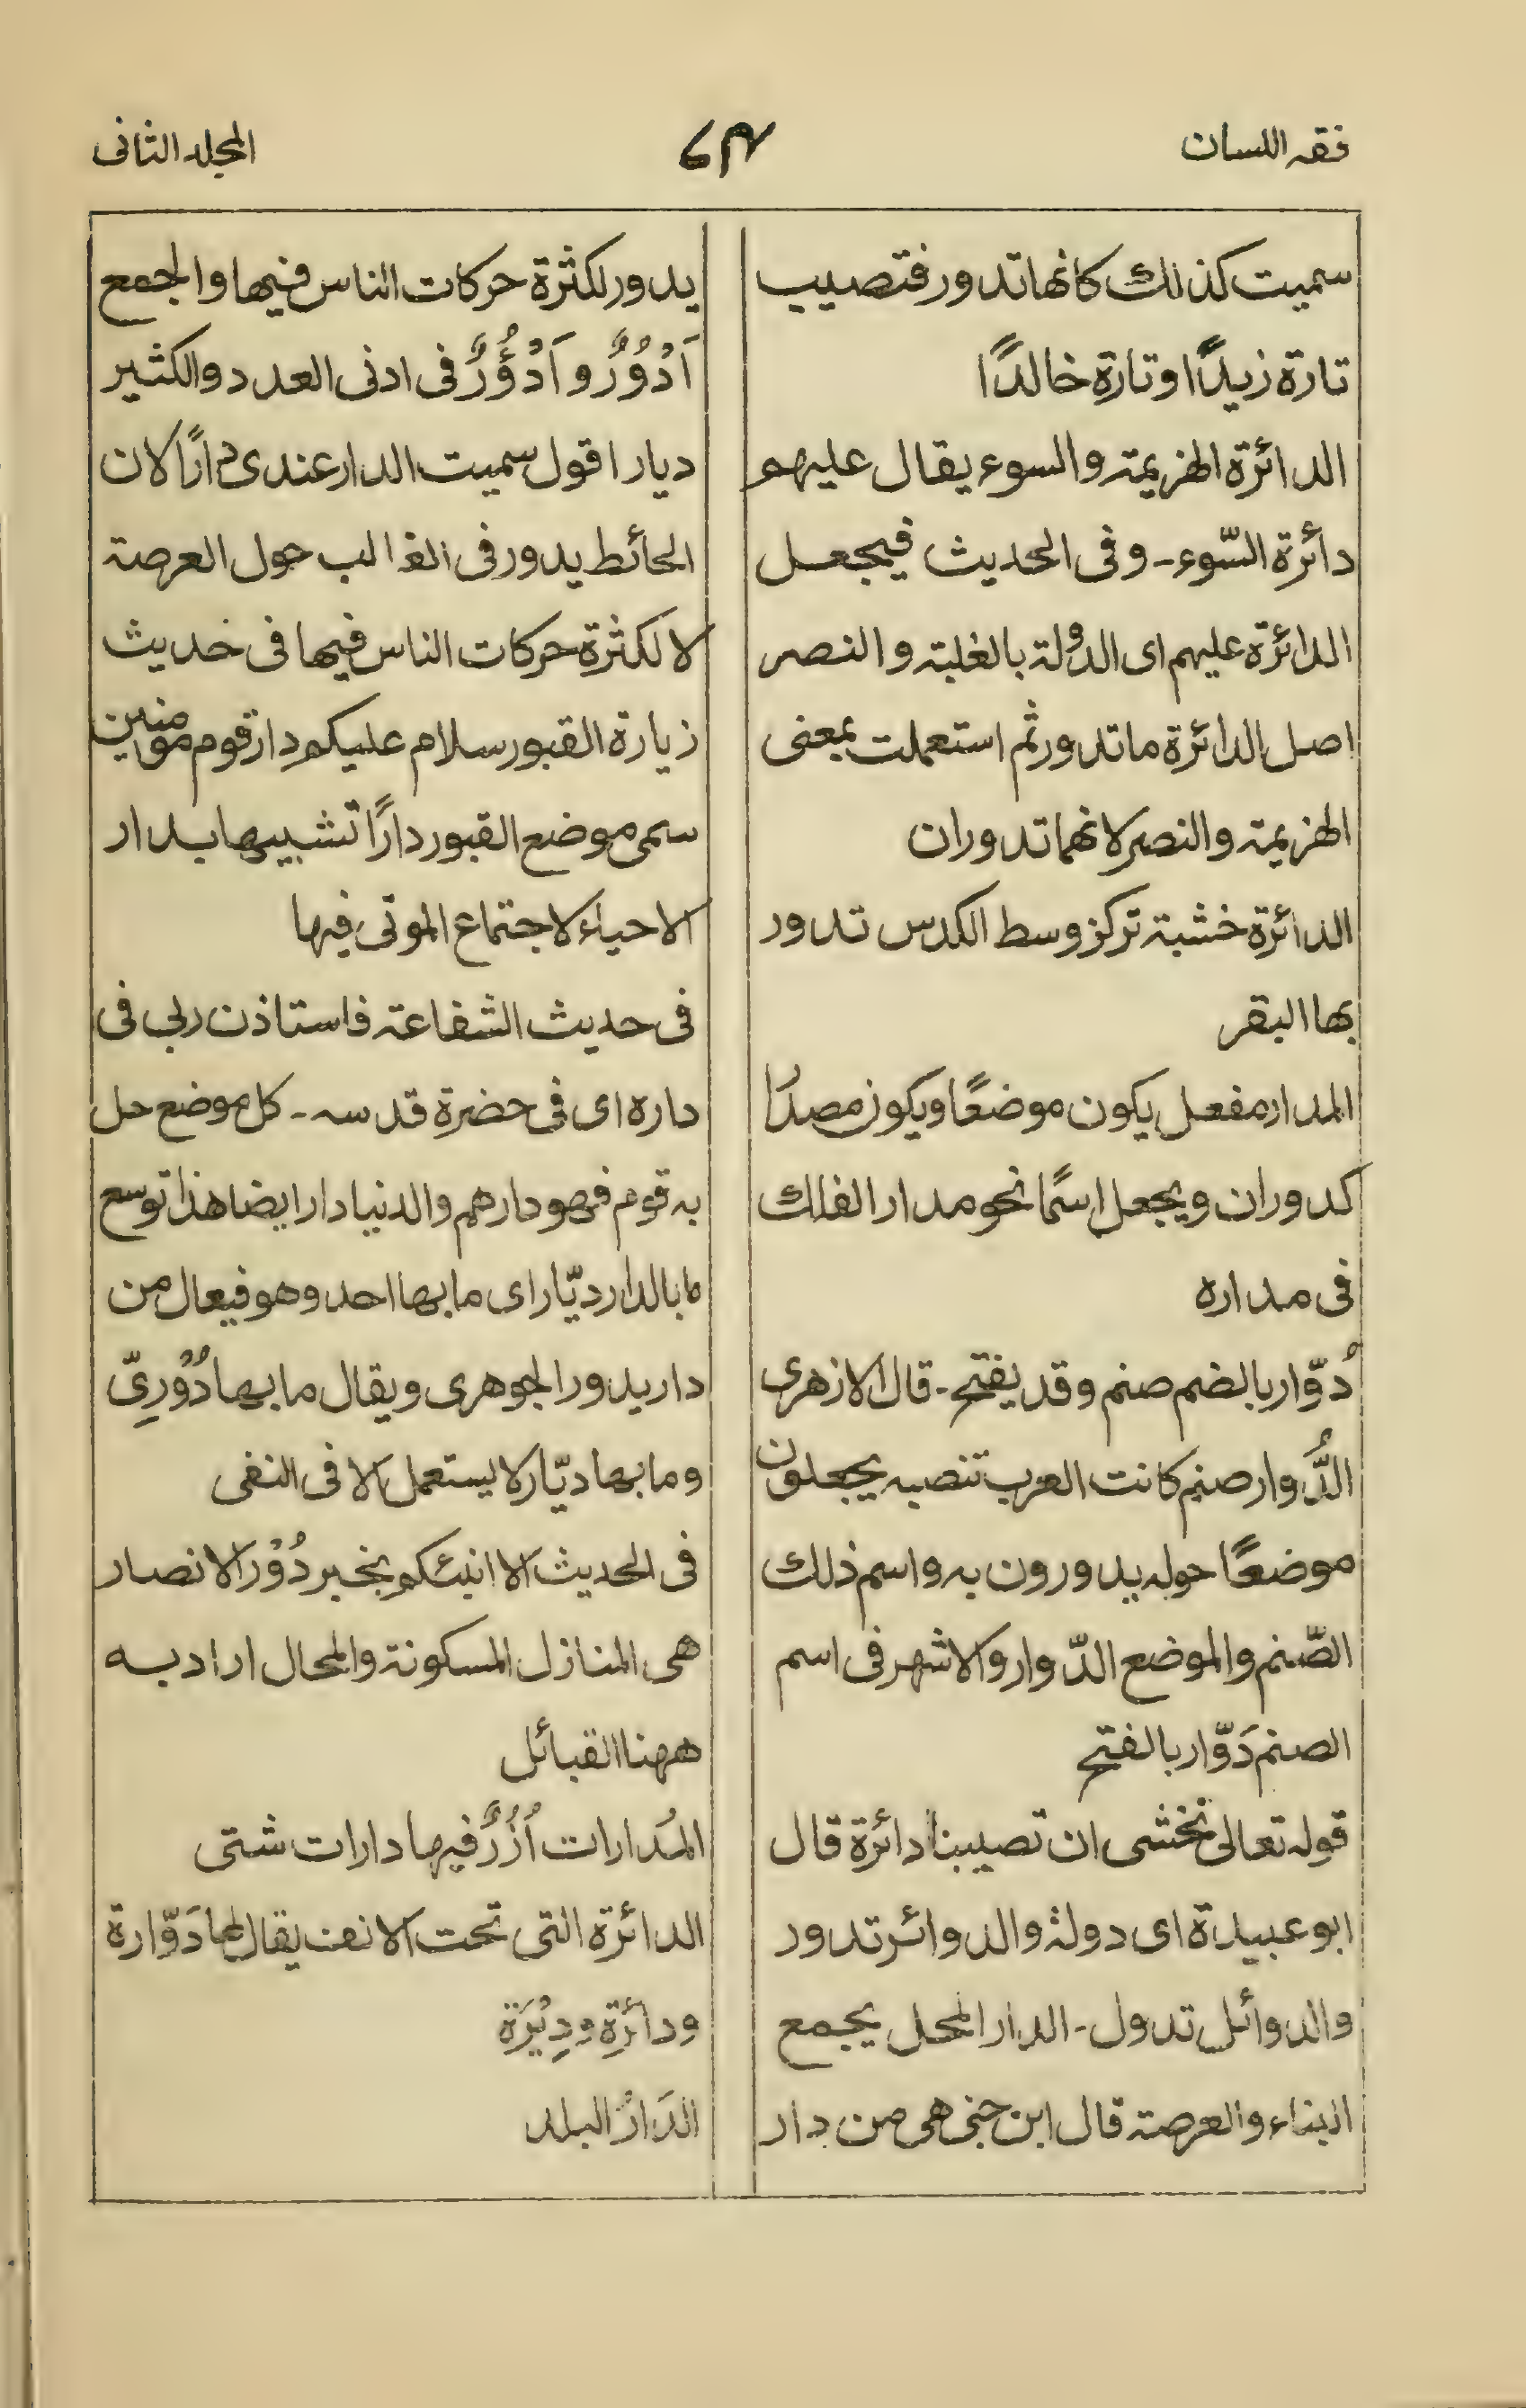 فقه اللسان
المجلد الثانی
سمیت کذلك کانها تدور فتصیب
تارة زیدًا و تارة خالدًا
الدائرة الهزیمة والسوء یقال علیهم
دائرة السّوء۔ وفی الحدیث فیجعل
الدائرة علیهم ای الدولة بالغلبة والنصر
اصل الدائرة ما تدور ثم استعملت بمعنی
الهزیمة والنصر لانهما تدوران
الدائرة خشبة ترکز وسط الکدس تدور
بها البقر
المدار مفعل یکون موضعًا ویکون مصدرًا
کدوران ویجعل اسمًا نحو مدار الفلك
فی مداره
دُوّار بالضم صنم وقد یفتح۔ قال الازهری
الدُّوار صنم کانت العرب تنصبه یجعلون
موضعًا حوله یدورون به واسم ذلك
الصّنم والموضع الدّوار والاشهر فی اسم
الصنم دَوّار بالفتح
قوله تعالی نخشی ان تصیبنا دائرة قال
ابو عبیدة ای دولة والدوائر تدور
والدوائل تدول۔ الدار المحل یجمع
البناء والعرصة قال ابن جنی هی من دار
یدور لکثرة حرکات الناس فیها والجمع
اَدْوُرٌ و اَدْؤُرٌ فی ادنی العدد والکثیر
دیار اقول سمیت الدار عندی دارًا لان
الحائط یدور فی الغالب حول العرصة
لا لکثرة حرکات الناس فیها فی حدیث
زیارة القبور سلام علیکم دار قوم مومنین
سمی موضع القبور دارًا تشبیها بدار
الاحیاء لاجتماع الموتی فیها
فی حدیث الشفاعة فاستاذن ربی فی
داره ای فی حضرة قدسه۔ کل موضع حل
به قوم فهو دارهم والدنیا دار ایضا هذا توسع
ما بالدار دیّار ای ما بها احد وهو فیعال من
دار یدور الجوهری ویقال ما بها دُوْرِیّ
وما بها دیّار لا یستعمل الا فی النفی
فی الحدیث الا انبئکم بخبر دُوْر الانصار
هی المنازل المسکونة والمحال اراد به
ههنا القبائل
المُدارات اُزُرٌ فیها دارات شتی
الدائرة التی تحت الانف یقال لها دَوّارة
ودائرة ودِیْرَة
الدَارُ البلد